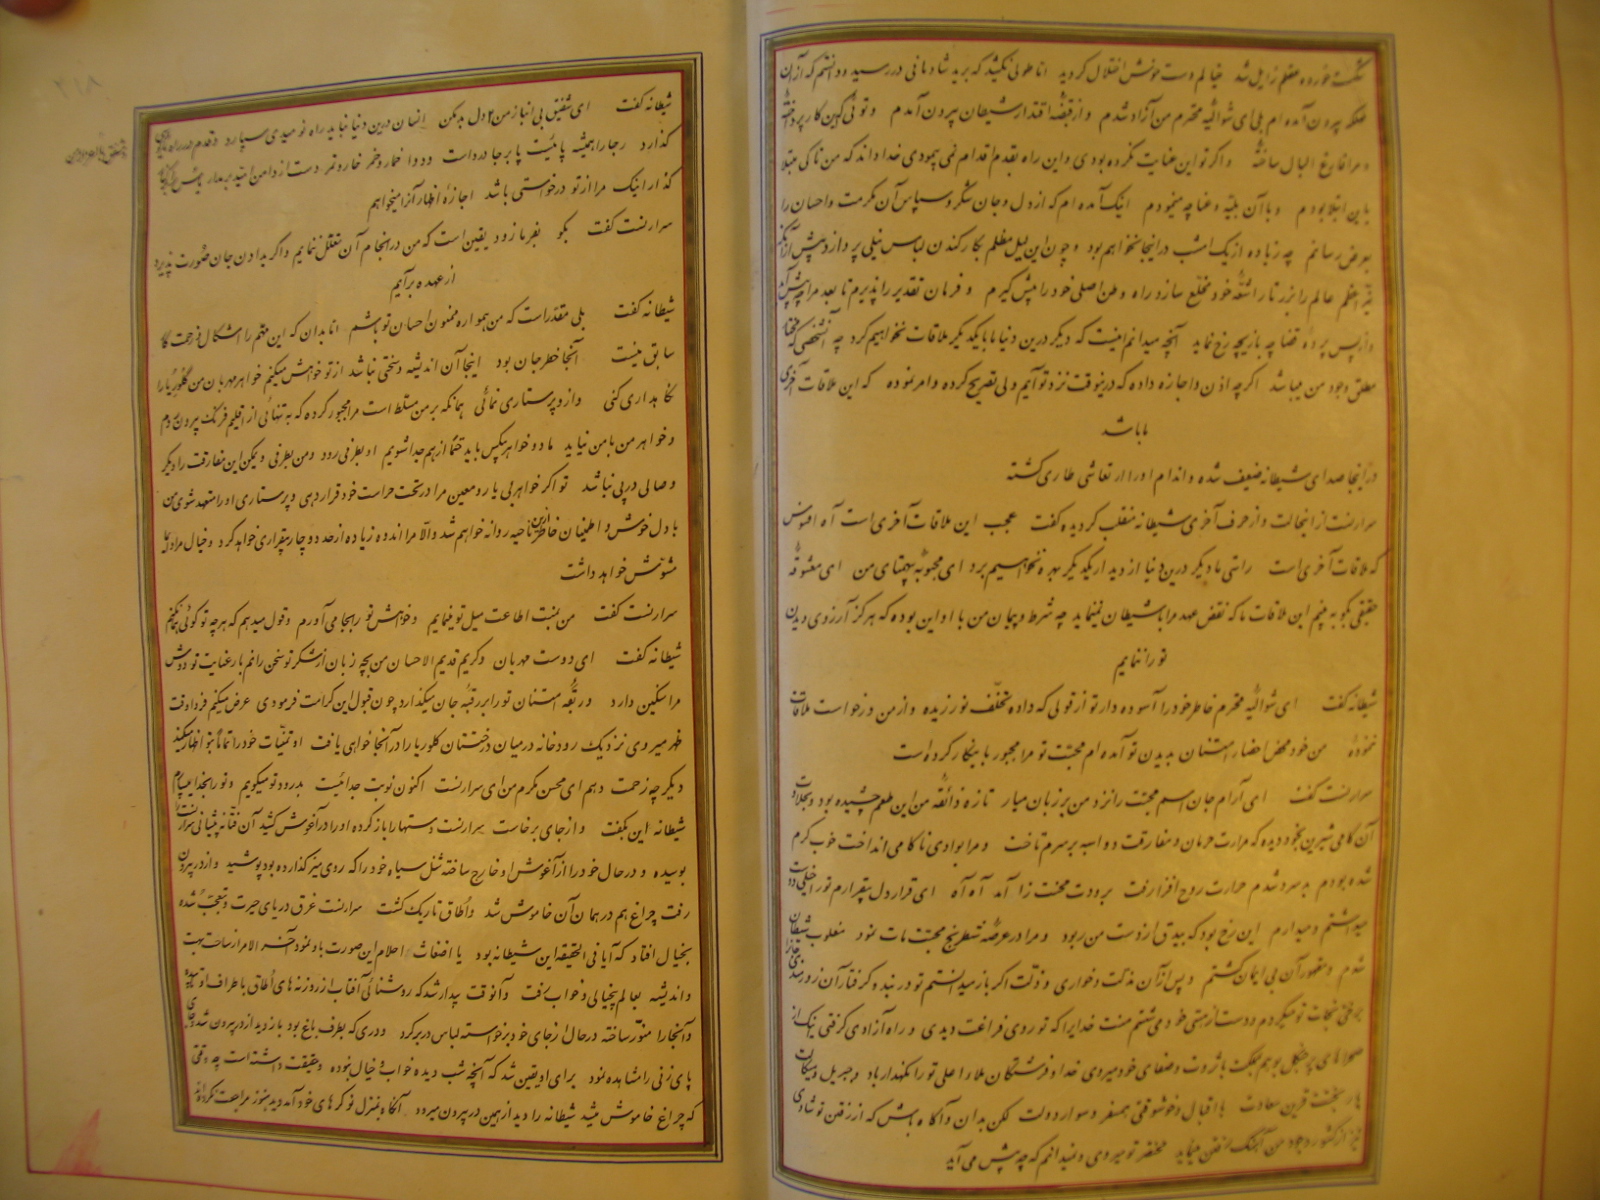 شکسته خورده عقلم زایل شد خیالم دست خوش اختلال گردید اما طولی نکشید که برید شادمانی در رسید و دانستم که از آن
مهلکه بیرون آمده ام بلی ای شوالیه محترم من آزاد شدم و از قبضه اقتدار شیطان بیرون آمدم و توئی که این کار پرداخته
و مرا فارغ البال ساخته و اگر تو این عنایت نکرده بودی و این راه بقدم اقدام نمی پیمودی خدا داند که من تا کی مبتلا
باین ابتلا بودم و با آن بلیه و عنا چه مینمودم اینک آمده ام که از دل و جان شکر و سپاس آن مکرمت و احسان را
بعرض رسانم چه زیاده از یک امشب در اینجا نخواهم بود و چون این لیل مظلم بکار کندن لباس نیلی پردازد و پیش از آنکه
نیر اعظم عالم را بزر تار اشعه خود مخلع سازد راه وطن اصلی خود را پیش گیرم و فرمان تقدیر را پذیرم تا بعد مرا چه پیش آید
و از پس پرده قضا چه بازیچه رخ نماید آنچه میدانم اینست که دیگر درین دنیا ما با یکدیگر ملاقات نخواهیم کرد چه آن شخصی که مختار
مطلق وجود من میباشد اگرچه اذن و اجازه داده که درینوقت نزد تو آیم ولی تصریح کرده و امر نموده که این ملاقات آخری
ما باشد
در اینجا صدای شیطانه ضعیف شده و اندام او را ارتعاشی طاری گشته
سرارنست از اینحالت و از حرف آخری شیطانه منقلب گردیده گفت عجب این ملاقات آخری است آه افسوس
که ملاقات آخری است راستی ما دیگر درین دنیا از دیدار یکدیگر بهره نخواهیم برد ای محبوبه بیهمتای من ای معشوقه
حقیقی بگو به بینم این ملاقات ما که نقض عهد مرا با شیطان نمینماید چه شرط و پیمان من با او این بوده که هرگز آرزوی دیدن
تو را ننمایم
شیطانه گفت ای شوالیه محترم خاطر خود را آسوده دار تو از قولی که داده تخلف نورزیده و از من درخواست ملاقات
ننموده من خود محض اظهار امتنان بدیدن تو آمده ام محبت تو مرا مجبور باینکار کرده است
سرارنست گفت ای آرام جان اسم محبت را نزد من بر زبان میار تازه ذائقه من این طعم چشیده بود و بحلاوت
آن کامی شیرین بخود دیده که مرارت حرمان و مفارقت دو اسبه بر سرم تاخت و مرا بوادی ناکامی انداخت خوب گرم
شده بودم به سرد شدم حرارت روح افزا رفت برودت محنت زا آمد آه آه ای قرار دل بیقرارم تو را خیلی دوست
میداشتم و میدارم این رخ بود که بیدقی از دست من ربود و مرا در عرصه شطرنج محبت مات نمود مغلوب شیطان
شدم و مقهور آن بی ایمان گشتم و پس از آن مذلت و خواری و ذلت اگر باز میدانستم تو در بند گرفتار آن زور
بر وفق نجات تو میکردم و دست از هستی خود می شستم منت خدایرا که تو روی فراغت دیدی و راه آزادی گرفتی اینک از
صحراهای پر جنگل بوهم بمملکت با ثروت و صفای خود میروی خدا و فرشتگان ملاء اعلی تو را نگهدار باد و جبریل و میکال
یار بختت قرین سعادت با اقبال و خوشوقتی همسفر و سوار دولت لکن بدان و آگاه باش که از رفتن تو شادی
نیز از کشور وجود من آهنگ رفتن مینماید مختصر تو میروی و نمیدانم که چه پیش می آید
۲۱۸
شیطانه گفت ای شفیق بی انباز من ۲ دل بد مکن انسان درین دنیا نباید راه نومیدی سپارد و قدم در راه
گذارد رجا را همیشه پائیست پا برجا در داست و دوا خمار و خمر خار و تمر دست از دامن امید بر مدار
گذار اینک مرا از تو درخواستی باشد اجازه اظهار آنرا میخواهم
سرارنست گفت بگو بفرما زود یقین است که من در انجام آن تعلل ننمایم و اگر بدادن جان صورت پذیرد
از عهده برآیم
شیطانه گفت بلی مقدر است که من همواره ممنون احسان تو باشم اما بدان که این مهم را اشکال و زحمت کار
سابق نیست آنجا خطر جان بود اینجا آن اندیشه و سختی نباشد از تو خواهش میکنم خواهر مهربان من گلوریا را
نگاهداری کنی و از و پرستاری نمائی همانکه بر من مسلط است مرا مجبور کرده که به تنهائی از اقلیم فرنگ بیرون روم
و خواهر من با من نیاید ما دو خواهر بیکس باید حتما از هم جدا شویم او بطرفی رود و من بطرفی و لیکن این مفارقت را دیگر
وصالی در پی نباشد تو اگر خواهر بی یار و معین مرا در تحت حراست خود قرار دهی و پرستاری او را متعهد شوی من
با دل خوش و اطمینان خاطر ازین ناحیه روانه خواهم شد و الا مرا اندوه زیاده از حد دوچار بیقراری خواهد کرد و خیال مرا دایما
مشوش خواهد داشت
سرارنست گفت من نیت اطاعت میل تو مینمایم و خواهش تو را بجا می آورم و قول میدهم که هرچه تو گوئی چنان کنم
شیطانه گفت ای دوست مهربان و کریم قدیم الاحسان من بچه زبان از شکر تو سخن رانم بار عنایت تو دوش
مرا سنگین دارد و ربقه امتنان تو را بر رقبه جان میگذارد چون قبول این کرامت فرمودی عرض میکنم فردا وقت
ظهر میروی نزدیک رودخانه در میان درختستان گلوریا را در آنجا خواهی یافت او تمنیات خود را تماما بتو اظهار میکند
دیگر چه زحمت دهم ای محسن مکرم من ای سرارنست اکنون نوبت جدائیست بدرود تو میگویم و تو را بخدا میسپارم
شیطانه این بگفت و از جای برخاست سرارنست دستها را باز کرده او را در آغوش کشید آن فتانه پیشانی سرارنست را
بوسیده و در حال خود را از آغوش او خارج ساخته شنل سیاه خود را که روی میز گذارده بود پوشید و از در بیرون
رفت چراغ هم در همان آن خاموش شد و اطاق تاریک گشت سرارنست غرق دریای حیرت و تعجب شده
بخیال افتاد که آیا فی الحقیقه این شیطانه بود یا اضغاث احلام این صورت باو نمود آخر الامر از ساحت بهت
و اندیشه بعالم بیخیالی و خواب رفت و آنوقت بیدار شد که روشنائی آفتاب از روزنه های اطاق باطراف او تابیده
و آنجا را منور ساخته در حال از جای خود برخواسته لباس در بر کرد و دری که بطرف باغ بود باز دید از در بیرون شد و جای
پای زنی را مشاهده نمود برای او یقین شد که آنچه شب دیده خواب و خیال نبوده و حقیقت داشته است چه وقتی
که چراغ خاموش میشد شیطانه را دید از همین در بیرون میرود آنگاه بمنزل نوکرهای خود آمده دید هنوز مراجعت نکرده اند